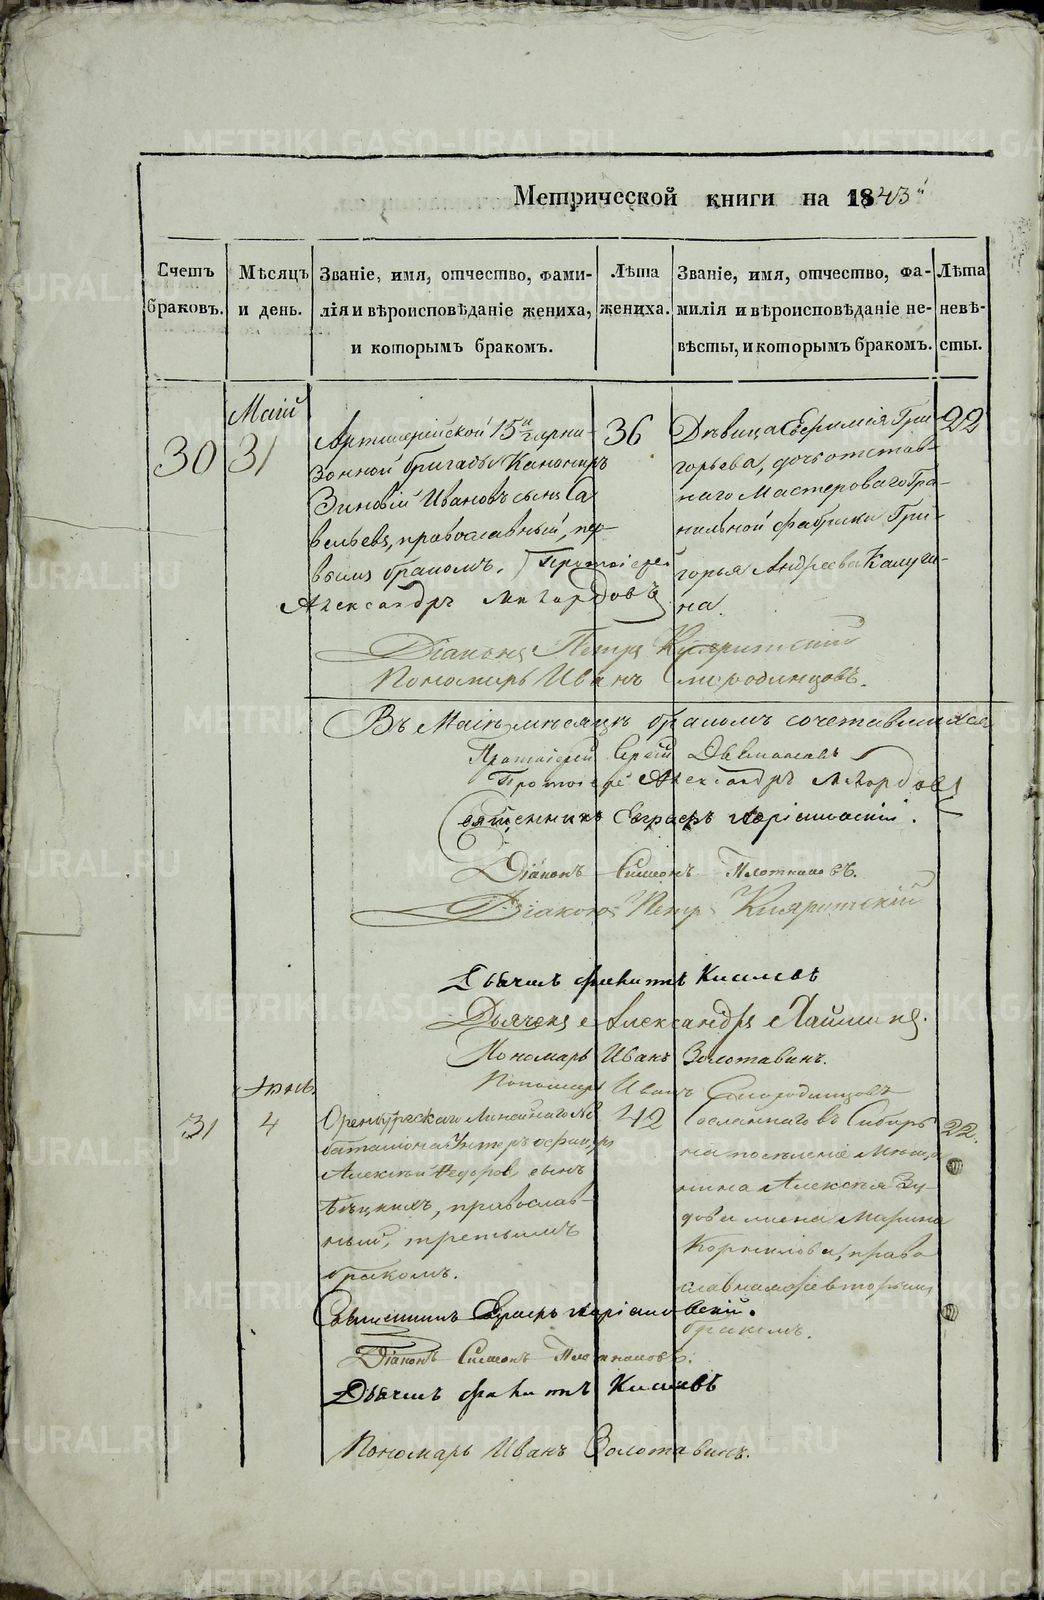 Метрической книги на 1843й
Счетъ браковъ.
Мѣсяцъ и день.
Званіе, имя, отчество, фами-
лія и вѣроисповѣданіе жениха,
и которымъ бракомъ.
Лѣта
жениха.
Званіе, имя, отчество, фа-
милія и вѣроисповѣданіе не-
вѣсты, и которымъ бракомъ.
Лѣта
невѣ-
сты.
30
Маій
31
Артиллерійской 15й гарни-
зонной бригады Канониръ
Зиновій Ивановъ сынъ Са
вельевъ, православный, пер-
вымъ бракомъ. Протоіерей
Александръ
36
Дѣвица Ефимія Гри-
горьева, дочь отстав-
наго Мастероваго Гра-
нильной фабрики Гри-
горья Андреева Калуги-
на.
22
Діаконъ Петръ
Пономарь Иванъ Смородинцовъ.
Въ Маіѣ мѣсяцѣ бракомъ сочетавшихся
Протоіерей Сергій
Протоіерей Александръ
Священникъ Евграфъ
Діаконъ Симеонъ Плотниковъ.
Діаконъ Петръ
Дьячекъ Киселевъ
Дьячекъ Александръ
Пономарь Иванъ Золотавинъ.
Пономарь Иванъ Смородинцовъ
31
Іюнь.
4
Оренбургскаго Линейнаго №
баталіона Унтеръ офицеръ
Алексѣй Федоровъ сынъ
православ-
ный, третьимъ
бракомъ.
42
Сосланнаго въ Сибирь
на поселеніе Мѣща
нина Алексѣя
жена Марина
Корнилова, право
славная вторымъ
бракомъ.
22.
Священникъ Евграфъ
Діаконъ Симеонъ Плотниковъ.
Дьячекъ Киселевъ
Пономарь Иванъ Золотавинъ.
METRIKI.GASO-URAL.RU